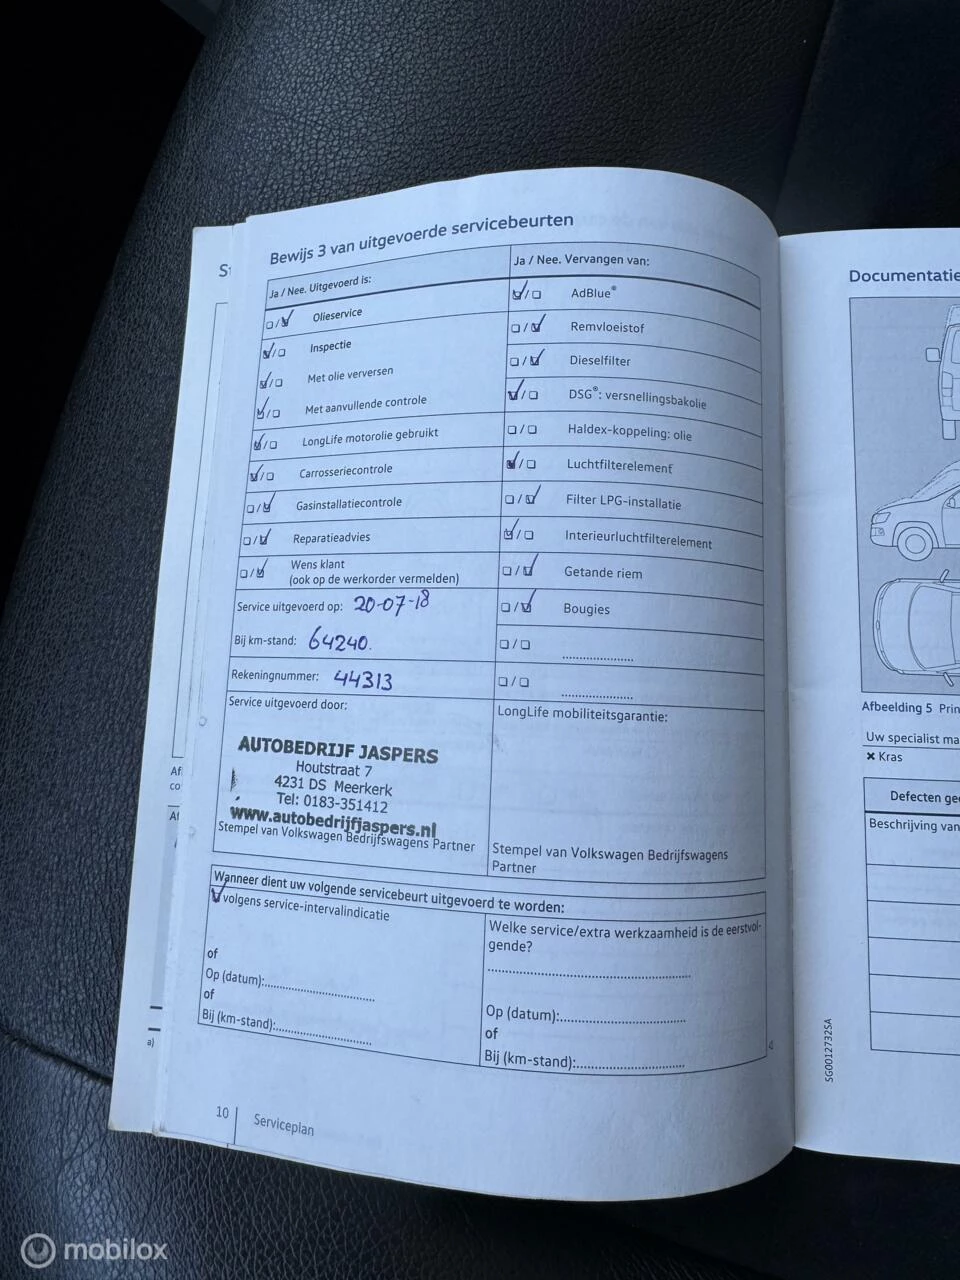 Bewijs 3 van uitgevoerde servicebeurten
Ja / Nee. Uitgevoerd is:
Olieservice
Inspectie
Met olie verversen
Met aanvullende controle
LongLife motorolie gebruikt
Carrosseriecontrole
Gasinstallatiecontrole
Reparatieadvies
Wens klant
(ook op de werkorder vermelden)
Service uitgevoerd op: 20-07-18
Bij km-stand: 64240.
Rekeningnummer: 44313
Service uitgevoerd door:
AUTOBEDRIJF JASPERS
Houtstraat 7
4231 DS Meerkerk
Tel: 0183-351412
www.autobedrijfjaspers.nl
Stempel van Volkswagen Bedrijfswagens Partner
Ja / Nee. Vervangen van:
AdBlue®
Remvloeistof
Dieselfilter
DSG®: versnellingsbakolie
Haldex-koppeling: olie
Luchtfilterelement
Filter LPG-installatie
Interieurluchtfilterelement
Getande riem
Bougies
LongLife mobiliteitsgarantie:
Stempel van Volkswagen Bedrijfswagens
Partner
Wanneer dient uw volgende servicebeurt uitgevoerd te worden:
volgens service-intervalindicatie
of
Op (datum):
of
Bij (km-stand):
Welke service/extra werkzaamheid is de eerstvol-
gende?
Op (datum):
of
Bij (km-stand):
10 Serviceplan
Documentatie
Afbeelding 5
Uw specialist
Kras
Defecten
Beschrijving van
SG0012732SA
a)
mobilox